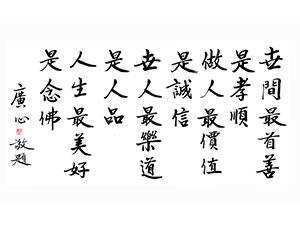 世間最首善
是孝順
做人最價值
是誠信
世人最樂道
是人品
人生最美好
是念佛
廣心敬題